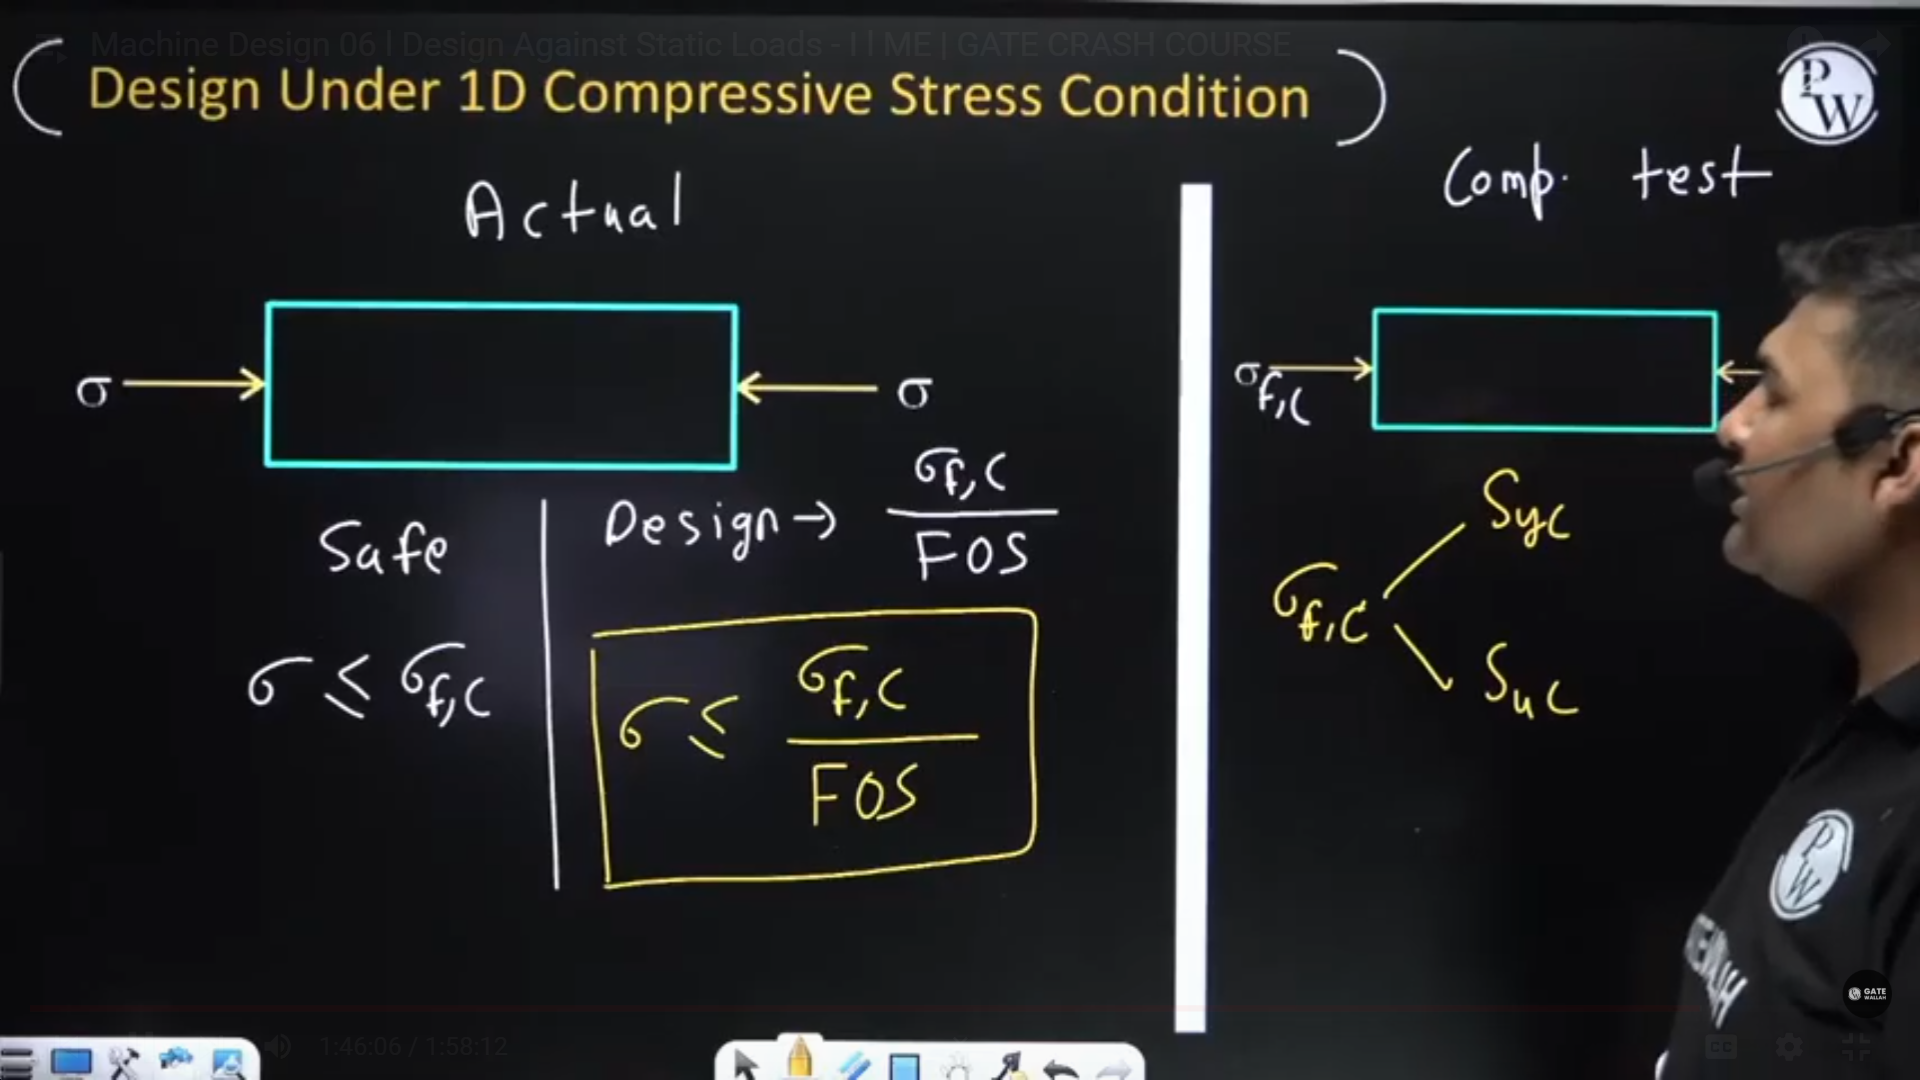 Machine Design 06 | Design Against Static Loads - I | ME | GATE CRASH COURSE
Design Under 1D Compressive Stress Condition
PW
Actual
Comp. test
σ
σ
σf,c
Safe
Design → σf,c / FOS
σ ≤ σf,c
σ ≤ σf,c / FOS
σf,c
Syc
Suc
PW
GATE WALLAH
1:46:06 / 1:58:12
CC